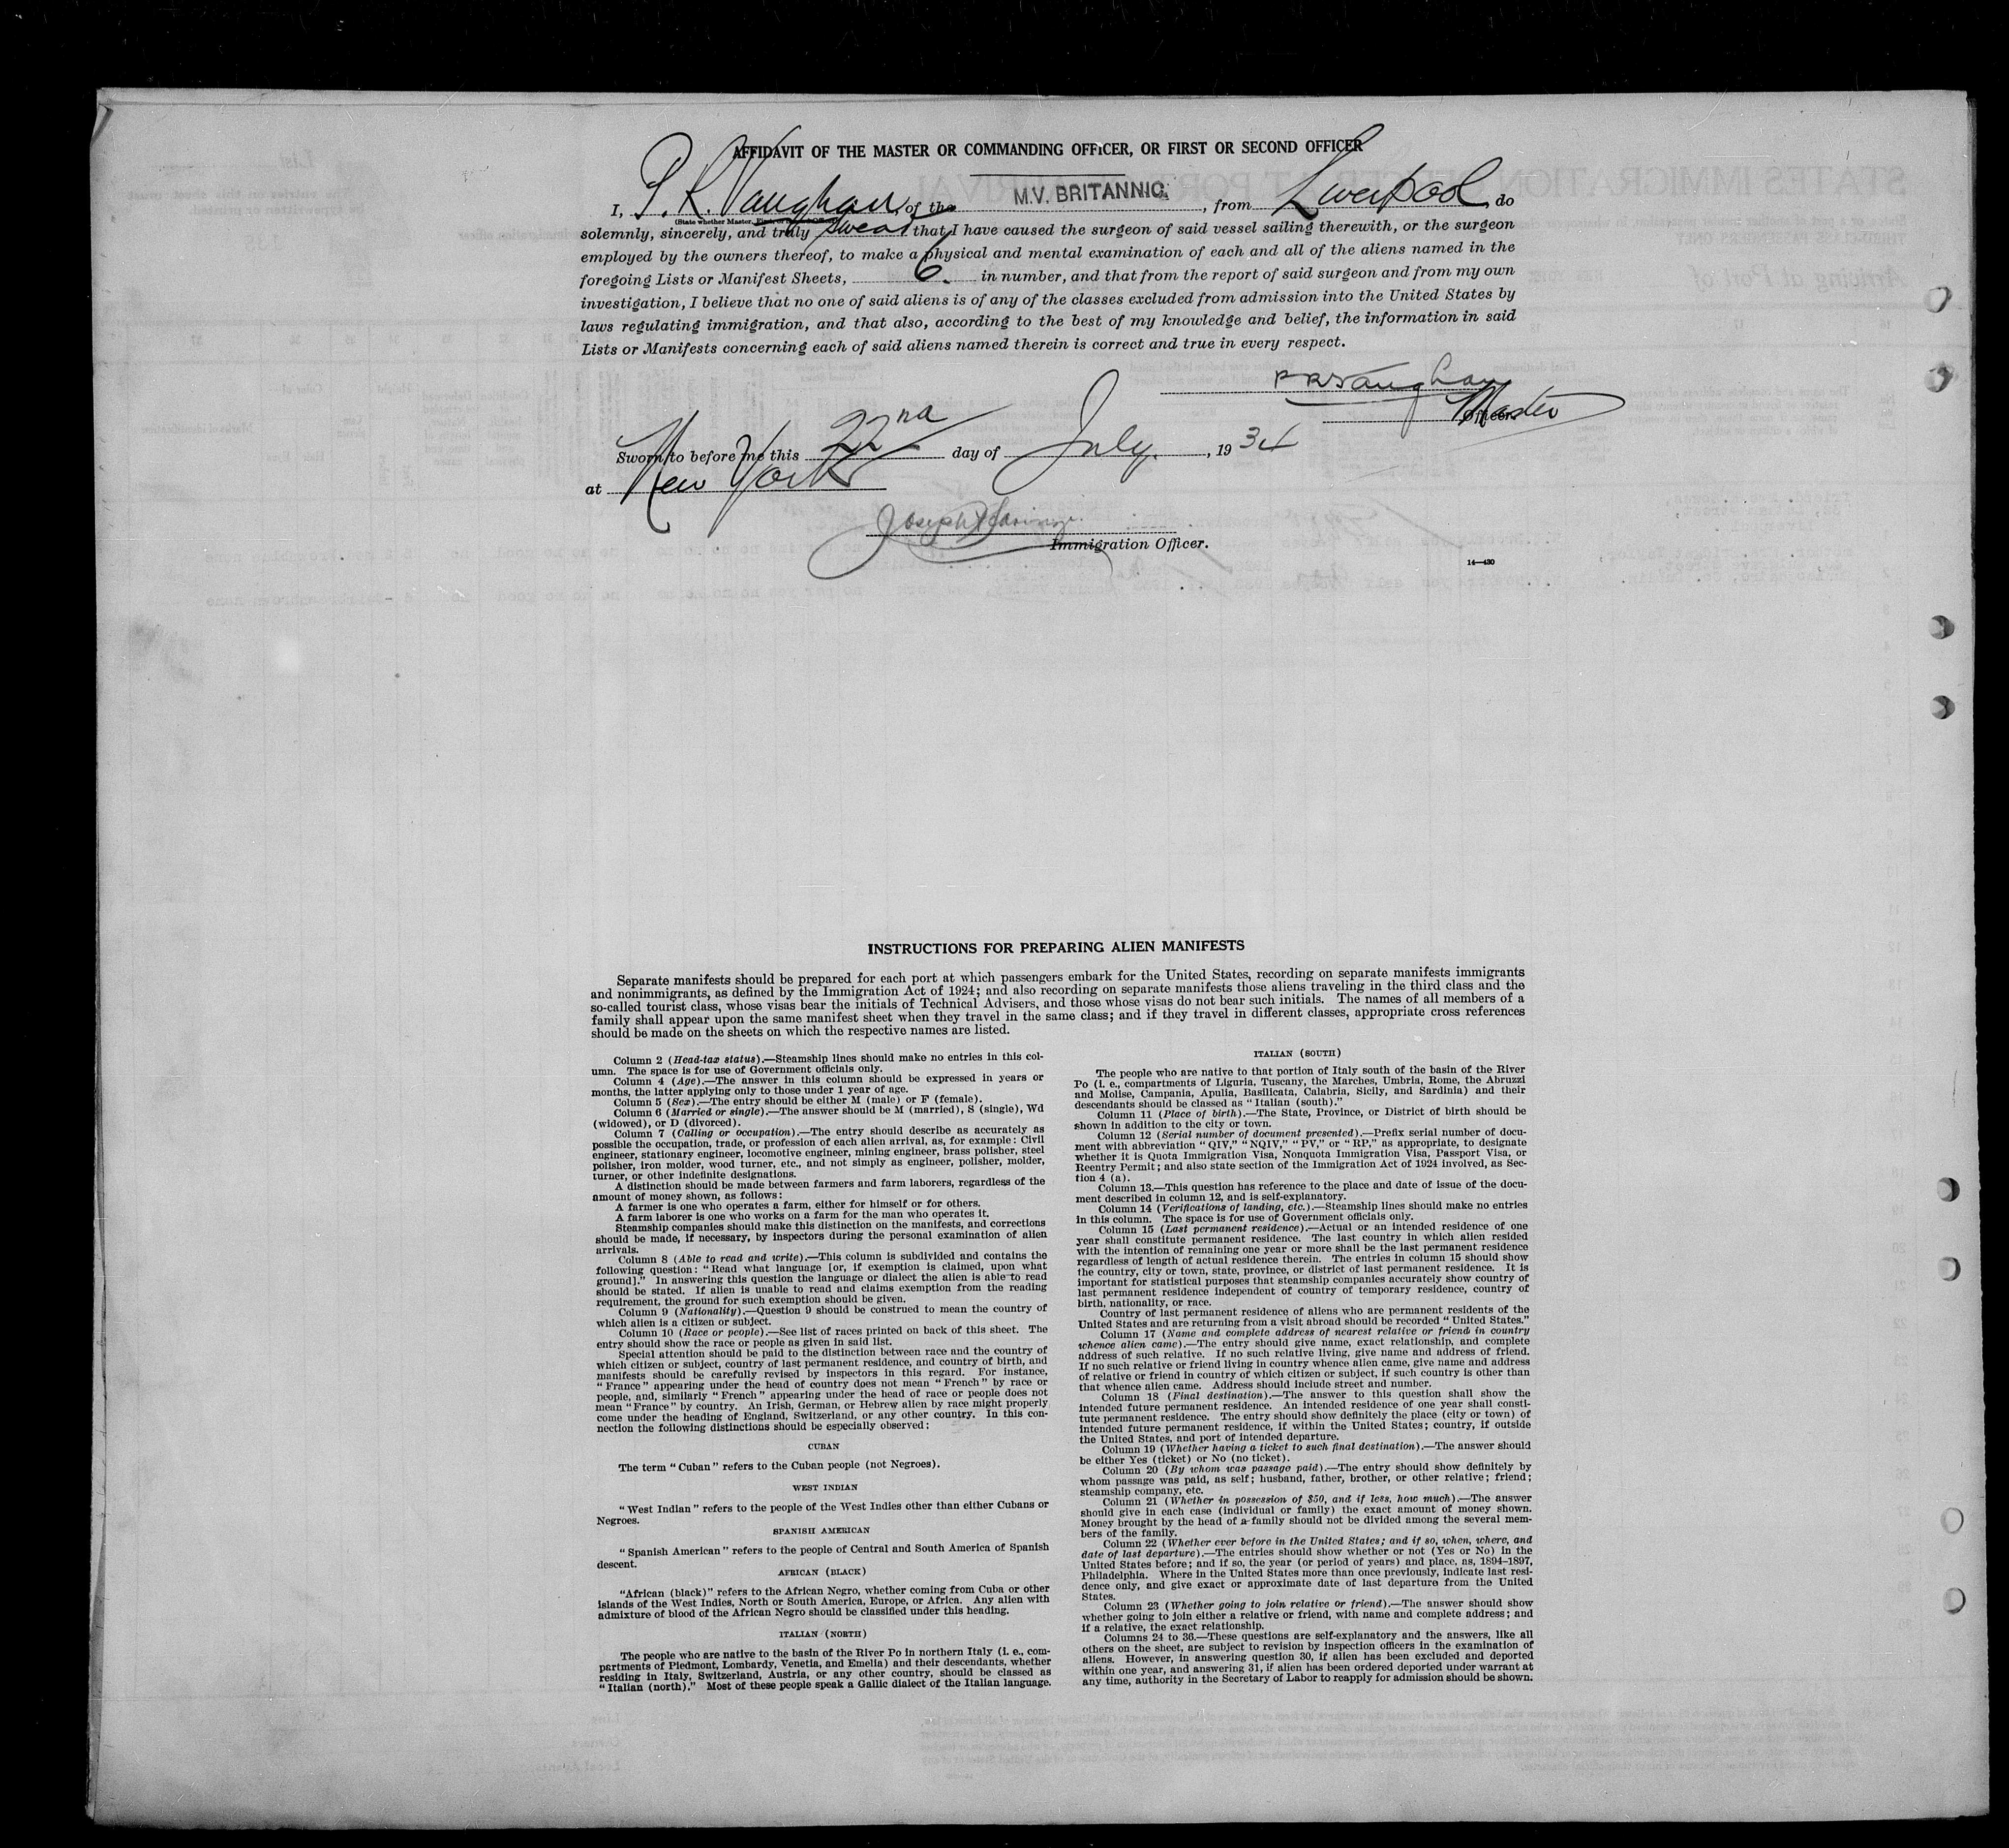 AFFIDAVIT OF THE MASTER OR COMMANDING OFFICER, OR FIRST OR SECOND OFFICER
I, P. R. Vaughan, of the M.V. BRITANNIC, from Liverpool, do
(State whether Master, First, or Second Officer)
solemnly, sincerely, and truly swear that I have caused the surgeon of said vessel sailing therewith, or the surgeon
employed by the owners thereof, to make a physical and mental examination of each and all of the aliens named in the
foregoing Lists or Manifest Sheets, 6. in number, and that from the report of said surgeon and from my own
investigation, I believe that no one of said aliens is of any of the classes excluded from admission into the United States by
laws regulating immigration, and that also, according to the best of my knowledge and belief, the information in said
Lists or Manifests concerning each of said aliens named therein is correct and true in every respect.
P R Vaughan
Master
Officer.
Sworn to before me this 22nd day of July., 1934
at New York
Joseph
Immigration Officer.
14—430
INSTRUCTIONS FOR PREPARING ALIEN MANIFESTS
Separate manifests should be prepared for each port at which passengers embark for the United States, recording on separate manifests immigrants
and nonimmigrants, as defined by the Immigration Act of 1924; and also recording on separate manifests those aliens traveling in the third class and the
so-called tourist class, whose visas bear the initials of Technical Advisers, and those whose visas do not bear such initials. The names of all members of a
family shall appear upon the same manifest sheet when they travel in the same class; and if they travel in different classes, appropriate cross references
should be made on the sheets on which the respective names are listed.
Column 2 (Head-tax status).—Steamship lines should make no entries in this col-
umn. The space is for use of Government officials only.
Column 4 (Age).—The answer in this column should be expressed in years or
months, the latter applying only to those under 1 year of age.
Column 5 (Sex).—The entry should be either M (male) or F (female).
Column 6 (Married or single).—The answer should be M (married), S (single), Wd
(widowed), or D (divorced).
Column 7 (Calling or occupation).—The entry should describe as accurately as
possible the occupation, trade, or profession of each alien arrival, as, for example: Civil
engineer, stationary engineer, locomotive engineer, mining engineer, brass polisher, steel
polisher, iron molder, wood turner, etc., and not simply as engineer, polisher, molder,
turner, or other indefinite designations.
A distinction should be made between farmers and farm laborers, regardless of the
amount of money shown, as follows:
A farmer is one who operates a farm, either for himself or for others.
A farm laborer is one who works on a farm for the man who operates it.
Steamship companies should make this distinction on the manifests, and corrections
should be made, if necessary, by inspectors during the personal examination of alien
arrivals.
Column 8 (Able to read and write).—This column is subdivided and contains the
following question: "Read what language [or, if exemption is claimed, upon what
ground]." In answering this question the language or dialect the alien is able to read
should be stated. If alien is unable to read and claims exemption from the reading
requirement, the ground for such exemption should be given.
Column 9 (Nationality).—Question 9 should be construed to mean the country of
which alien is a citizen or subject.
Column 10 (Race or people).—See list of races printed on back of this sheet. The
entry should show the race or people as given in said list.
Special attention should be paid to the distinction between race and the country of
which citizen or subject, country of last permanent residence, and country of birth, and
manifests should be carefully revised by inspectors in this regard. For instance,
"France" appearing under the head of country does not mean "French" by race or
people, and, similarly "French" appearing under the head of race or people does not
mean "France" by country. An Irish, German, or Hebrew alien by race might properly
come under the heading of England, Switzerland, or any other country. In this con-
nection the following distinctions should be especially observed:
CUBAN
The term "Cuban" refers to the Cuban people (not Negroes).
WEST INDIAN
"West Indian" refers to the people of the West Indies other than either Cubans or
Negroes.
SPANISH AMERICAN
"Spanish American" refers to the people of Central and South America of Spanish
descent.
AFRICAN (BLACK)
"African (black)" refers to the African Negro, whether coming from Cuba or other
islands of the West Indies, North or South America, Europe, or Africa. Any alien with
admixture of blood of the African Negro should be classified under this heading.
ITALIAN (NORTH)
The people who are native to the basin of the River Po in northern Italy (i. e., com-
partments of Piedmont, Lombardy, Venetia, and Emelia) and their descendants, whether
residing in Italy, Switzerland, Austria, or any other country, should be classed as
"Italian (north)." Most of these people speak a Gallic dialect of the Italian language.
ITALIAN (SOUTH)
The people who are native to that portion of Italy south of the basin of the River
Po (i. e., compartments of Liguria, Tuscany, the Marches, Umbria, Rome, the Abruzzi
and Molise, Campania, Apulia, Basilicata, Calabria, Sicily, and Sardinia) and their
descendants should be classed as "Italian (south)."
Column 11 (Place of birth).—The State, Province, or District of birth should be
shown in addition to the city or town.
Column 12 (Serial number of document presented).—Prefix serial number of docu-
ment with abbreviation "QIV," "NQIV," "PV," or "RP," as appropriate, to designate
whether it is Quota Immigration Visa, Nonquota Immigration Visa, Passport Visa, or
Reentry Permit; and also state section of the Immigration Act of 1924 involved, as Sec-
tion 4 (a).
Column 13.—This question has reference to the place and date of issue of the docu-
ment described in column 12, and is self-explanatory.
Column 14 (Verifications of landing, etc.).—Steamship lines should make no entries
in this column. The space is for use of Government officials only.
Column 15 (Last permanent residence).—Actual or an intended residence of one
year shall constitute permanent residence. The last country in which alien resided
with the intention of remaining one year or more shall be the last permanent residence
regardless of length of actual residence therein. The entries in column 15 should show
the country, city or town, state, province, or district of last permanent residence. It is
important for statistical purposes that steamship companies accurately show country of
last permanent residence independent of country of temporary residence, country of
birth, nationality, or race.
Country of last permanent residence of aliens who are permanent residents of the
United States and are returning from a visit abroad should be recorded "United States."
Column 17 (Name and complete address of nearest relative or friend in country
whence alien came).—The entry should give name, exact relationship, and complete
address of such relative. If no such relative living, give name and address of friend.
If no such relative or friend living in country whence alien came, give name and address
of relative or friend in country of which citizen or subject, if such country is other than
that whence alien came. Address should include street and number.
Column 18 (Final destination).—The answer to this question shall show the
intended future permanent residence. An intended residence of one year shall consti-
tute permanent residence. The entry should show definitely the place (city or town) of
intended future permanent residence, if within the United States; country, if outside
the United States, and port of intended departure.
Column 19 (Whether having a ticket to such final destination).—The answer should
be either Yes (ticket) or No (no ticket).
Column 20 (By whom was passage paid).—The entry should show definitely by
whom passage was paid, as self; husband, father, brother, or other relative; friend;
steamship company, etc.
Column 21 (Whether in possession of $50, and if less, how much).—The answer
should give in each case (individual or family) the exact amount of money shown.
Money brought by the head of a family should not be divided among the several mem-
bers of the family.
Column 22 (Whether ever before in the United States; and if so, when, where, and
date of last departure).—The entries should show whether or not (Yes or No) in the
United States before; and if so, the year (or period of years) and place, as, 1894–1897,
Philadelphia. Where in the United States more than once previously, indicate last resi-
dence only, and give exact or approximate date of last departure from the United
States.
Column 23 (Whether going to join relative or friend).—The answer should show
whether going to join either a relative or friend, with name and complete address; and
if a relative, the exact relationship.
Columns 24 to 36.—These questions are self-explanatory and the answers, like all
others on the sheet, are subject to revision by inspection officers in the examination of
aliens. However, in answering question 30, if alien has been excluded and deported
within one year, and answering 31, if alien has been ordered deported under warrant at
any time, authority in the Secretary of Labor to reapply for admission should be shown.